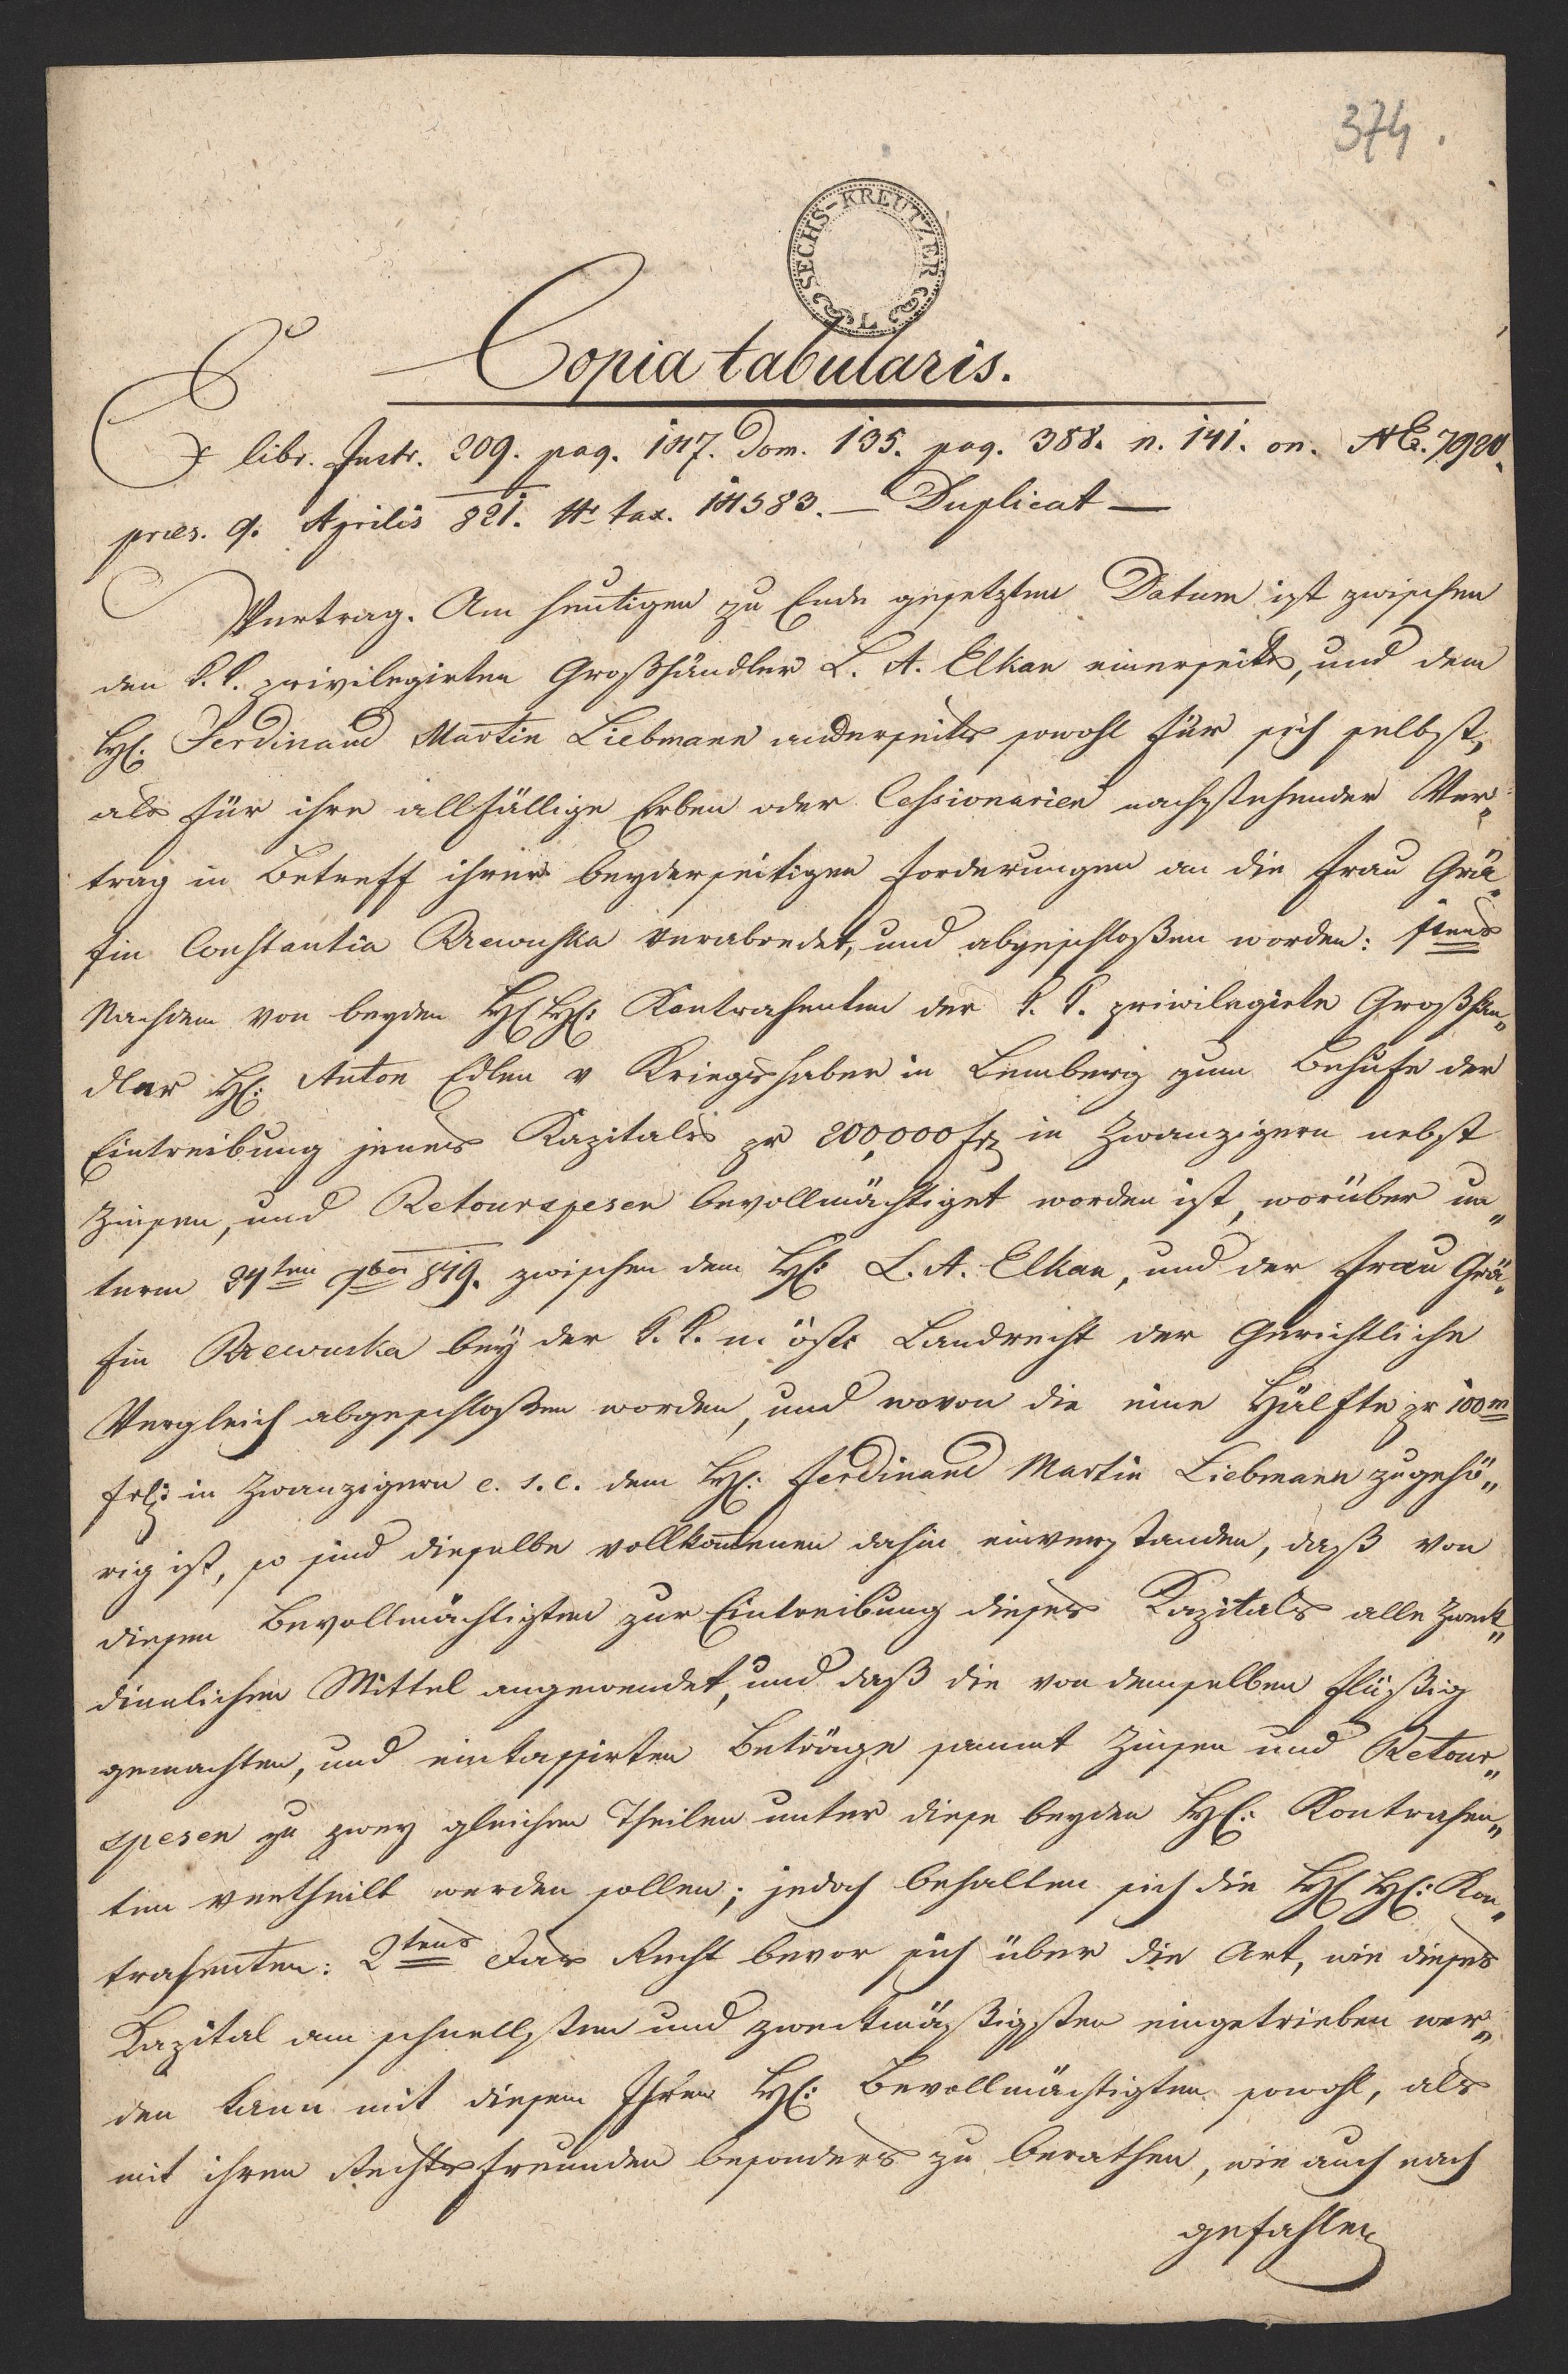 374.
SECHS-KREUTZER
L
Copia tabularis.
Ex libr. Instr. 209. pag. 147. Dom. 135. pag. 388. n. 141. on. NE. 7920.
præs. 9. Aprilis 821. N tax. 14583. — Duplicat —
Vertrag. Am heutigen zu Ende gesetzten Datum ist zwischen
den k. k. privilegirten Großhändler L. A. Elkan einerseits, und dem
H. Ferdinand Martin Liebmann anderseits sowohl für sich selbst,
als für ihre allfällige Erben oder Cessionarien nachstehender Ver„
trag in Betreff ihrer beyderseitigen Forderungen an die Frau Grä„
fin Constantia Rzewuska verabredet, und abgeschloßen worden: 1tens
Nachdem von beyden HH: Kontrahenten der k. k. priwilegirte Großhän„
dler H: Anton Edlen v Kriegshaber in Lemberg zum Behufe der
Eintreibung jenes Kapitals pr 200,000 fr in Zwanzigern nebst
Zinsen, und Retourspesen bevollmächtiget worden ist, worüber un„
term 24ten 9ber 819. zwischen dem H: L. A. Elkan, und der Frau Grä„
fin Rzewuska bey der k. k. n: öst: Landrecht der Gerichtliche
Vergleich abgeschloßen worden, und wovon die eine Hälfte pr 100m
fr: in Zwanzigern c. s. c. dem H: Ferdinand Martin Liebmann zugehö„
rig ist, so sind dieselbe vollkom̄enen dahin einverstanden, daß von
diesen Bevollmächtigten zur Eintreibung dieses Kapitals alle zweck„
dienlichen Mittel angewendet, und daß die von demselben flüßig
gemachten, und einkassirten Beträge sammt Zinsen und Retour„
spesen zu zwey gleichen Theilen unter diese beyden H: Kontrahen„
ten vertheilt werden sollen; jedoch behalten sich die HH: Kon„
trahenten: 2tens das Recht bevor sich über die Art, wie dieses
Kapital am schnellsten und zweckmäßigsten eingetrieben wer„
den kann mit diesem Ihren H: Bevollmächtigten sowohl, als
mit ihren Rechtsfreunden besonders zu berathen, wie auch nach
gefahlen